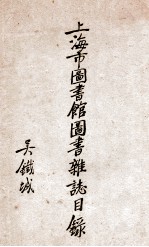 上海市圖書館圖書雜誌目錄
吳鐵城